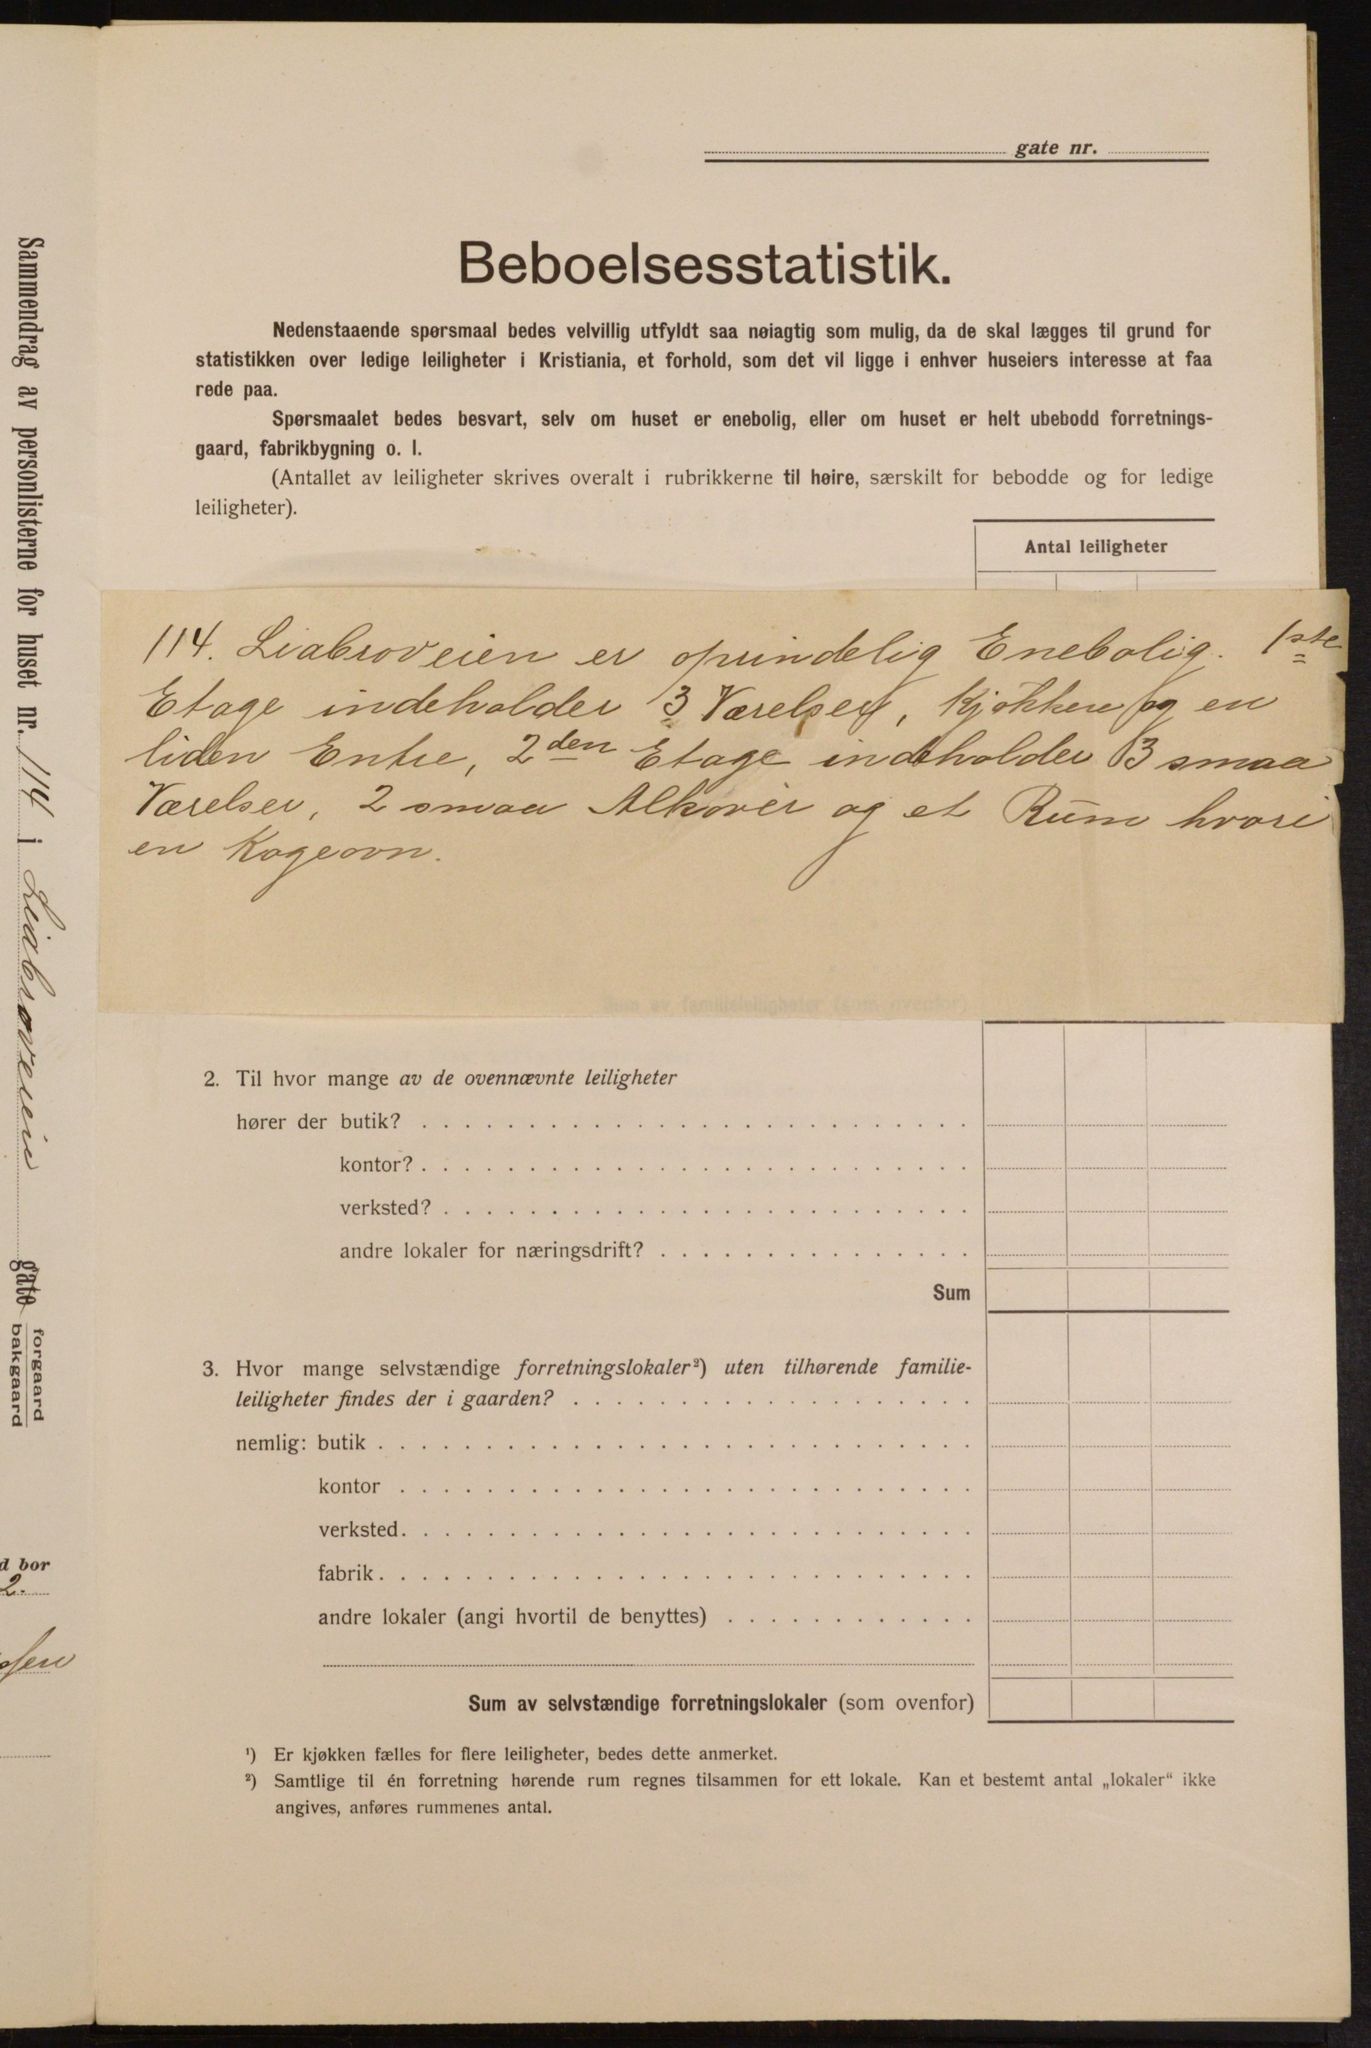 Sammendrag av personlisterne for huset nr. 114 i Liabroveien gate forgaard bakgaard
d bor
2.
gate nr.
Beboelsesstatistik.
Nedenstaaende spørsmaal bedes velvillig utfyldt saa nøiagtig som mulig, da de skal lægges til grund for
statistikken over ledige leiligheter i Kristiania, et forhold, som det vil ligge i enhver huseiers interesse at faa
rede paa.
Spørsmaalet bedes besvart, selv om huset er enebolig, eller om huset er helt ubebodd forretnings-
gaard, fabrikbygning o. l.
(Antallet av leiligheter skrives overalt i rubrikkerne til høire, særskilt for bebodde og for ledige
leiligheter).
Antal leiligheter
114. Liabroveien er oprindelig Enebolig. 1ste
Etage indeholder 3 Værelser, Kjøkken og en
liden Entre, 2den Etage indeholder 3 smaa
Værelser, 2 smaa Alkover og et Rum hvori
en Kogeovn.
Sum av familieleiligheter (som ovenfor)
2. Til hvor mange av de ovennævnte leiligheter
hører der butik?
kontor?
verksted?
andre lokaler for næringsdrift?
Sum
3. Hvor mange selvstændige forretningslokaler²) uten tilhørende familie-
leiligheter findes der i gaarden?
nemlig: butik
kontor
verksted
fabrik
andre lokaler (angi hvortil de benyttes)
Sum av selvstændige forretningslokaler (som ovenfor)
¹) Er kjøkken fælles for flere leiligheter, bedes dette anmerket.
²) Samtlige til én forretning hørende rum regnes tilsammen for ett lokale. Kan et bestemt antal „lokaler“ ikke
angives, anføres rummenes antal.